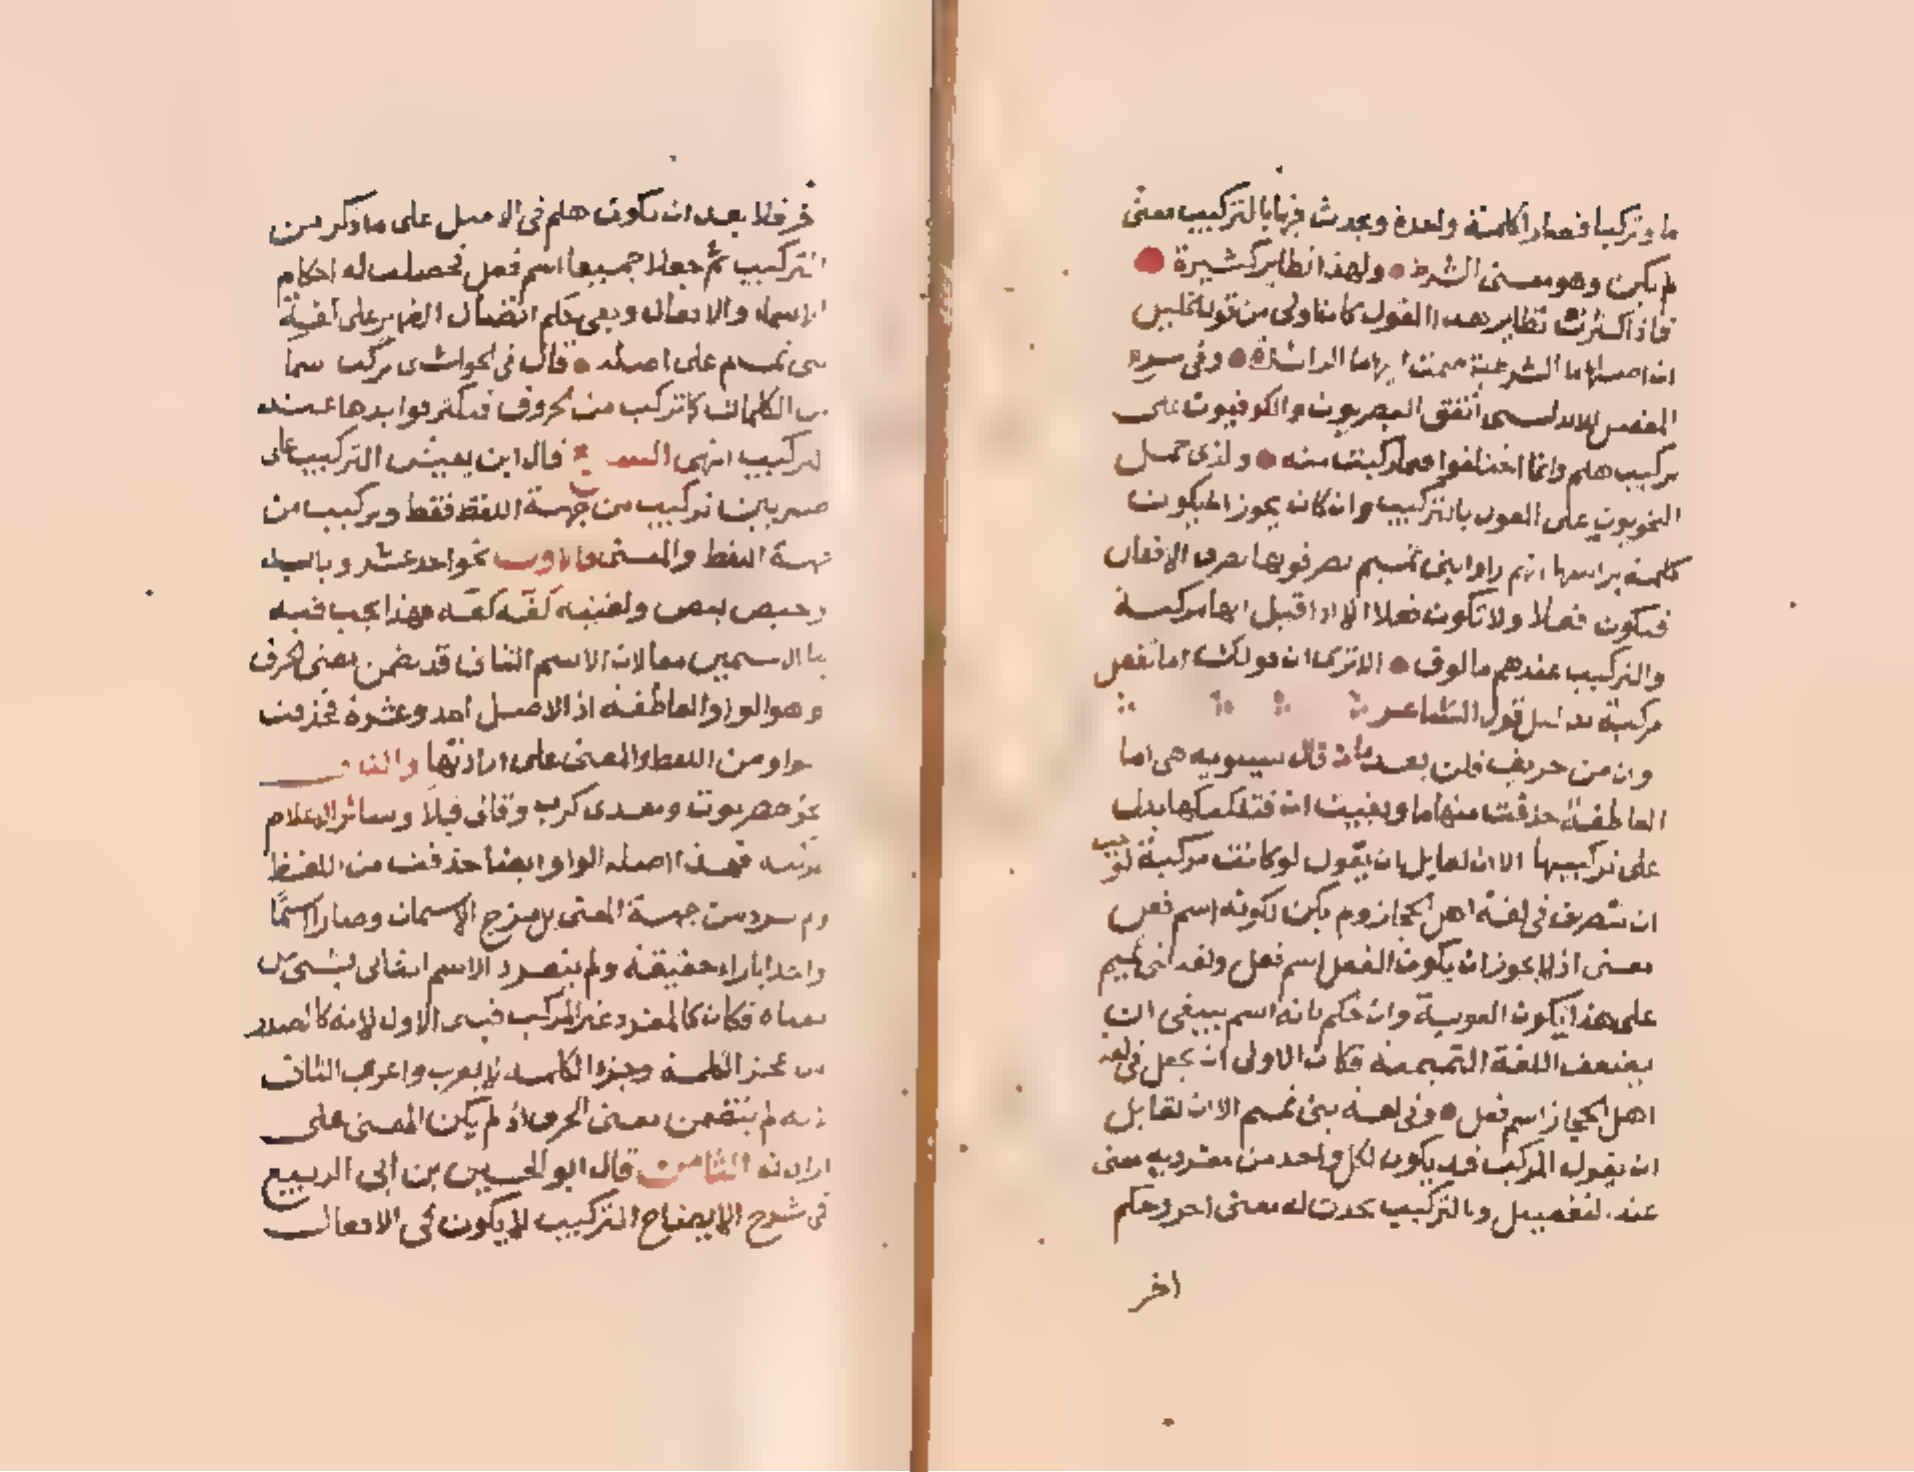 ما وتركبا فصارا كلمة واحدة ويحدث فيها بالتركيب معنى
لم يكن وهو معنى الشرط ولهذا نظاير كثيرة
فاذا كثرت نظاير هذا القول كانا اولى من قول الخليل
ان اصلها ما الشرعية ضمت اليها ما الزائدة وفى شرح
المفصل للاندلسى اتفق البصريون والكوفيون على
تركيب هلم وانما اختلفوا فيما ركبت منه والذى حمل
النحويون على القول بالتركيب وان كان يجوز ان يكون
كلمة براسها انهم راوا بنى تميم يصرفونها تصرف الافعال
فيكون فعلا ولا تكون فعلا الا اذا قيل انها مركبة
والتركيب عندهم مالوف الا ترى ان قولك اما تفعل
مركبة بدليل قول الشاعر
وان من خريف فلن يعدما قال سيبويه هى اما
العاطفة حذفت منها ما وبقيت ان فتفكيكها يدل
على تركيبها الا ان لقايل ان يقول لو كانت مركبة لوجب
ان تتصرف فى لغة اهل الحجاز ولم يكن لكونه اسم فعل
معنى اذ لا يجوز ان يكون الفعل اسم فعل ولغة بنى تميم
على هذا يكون القوية وان حكم بانه اسم ينبغى ان
يضعف اللغة التميمية فكان الاولى ان يجعل فى لغة
اهل الحجاز اسم فعل وفى لغة بنى تميم الا ان لقايل
ان يقول المركب قد يكون لكل واحد من مفرديه معنى
عند التفصيل وبالتركيب يحدث له معنى اخر وحكم
اخر
اخر فلا يبعد ان تكون هلم فى الاصل على ما ذكر من
التركيب ثم جعلا جميعا اسم فعل فحصلت له احكام
الاسماء والافعال وبقى حكم اتصال الضماير على لغة
بنى تميم على اصله قال فى الحواشى مركب
من الكلمات كما تركب من الحروف فتكثر فوايدها عند
التركيب انتهى السابع قال ابن يعيش التركيب على
ضربين تركيب من جهة اللفظ فقط وتركيب من
جهة اللفظ والمعنى فالاول نحو احد عشر وبابه
وحيص بيص ولقيته كفة كفة فهذا يجب فيه
بنا الاسمين معا لان الاسم الثانى قد تضمن معنى الحرف
وهو الواو العاطفة اذ الاصل احد وعشرة فحذفت
الواو من اللفظ والمعنى على ارادتها والثانى
نحو حضرموت ومعدى كرب وقالى قلا وسائر الاعلام
المركبة فهذا اصله الواو ايضا حذفت من اللفظ
ولم ترد من جهة المعنى بل مزج الاسمان وصارا اسمًا
واحدا بازاء حقيقة ولم ينفرد الاسم الثانى بشىء من
معناه فكان كالمفرد غير المركب فبنى الاول لانه كالصدر
من عجز الكلمة وجزء الكلمة لا يعرب واعرب الثانى
لانه لم يتضمن معنى الحرف اذ لم يكن المعنى على
ارادته الثامن قال ابو الحسين بن ابى الربيع
فى شرح الايضاح التركيب لا يكون فى الافعال